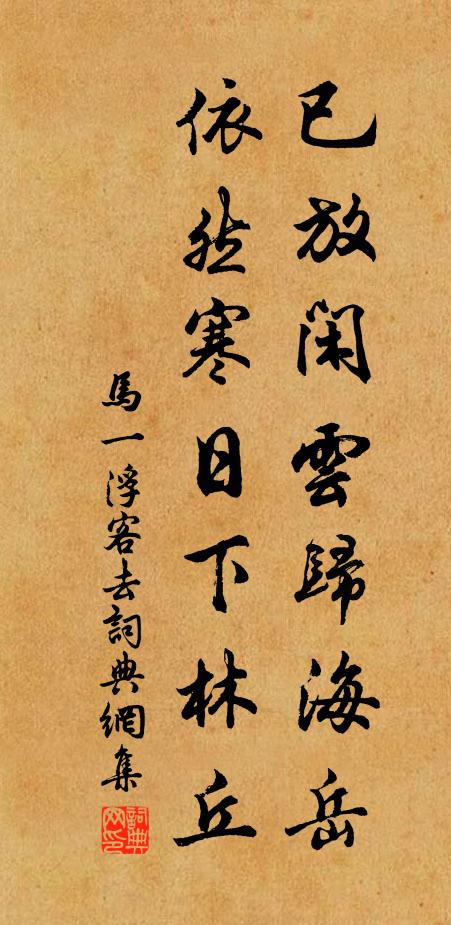 已放閑雲歸海岳
依然寒日下林丘
馬一浮客去詞典網集
詞典网印